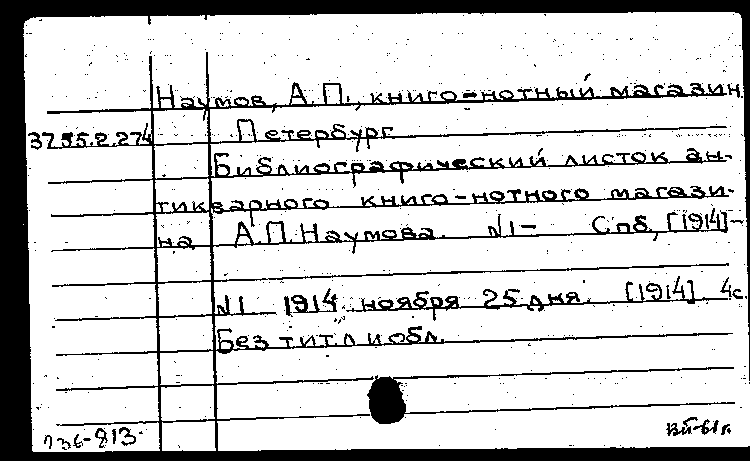 Наумов, А.П., книго-нотный магазин
37.55.2.274 Петербург
Библиографический листок ан-
тикварного книго-нотного магази-
на А.П. Наумова. №1- Спб, [1914]-
№1 1914 ноября 25 дня. [1914]. 4с.
Без тит. л и обл.
736-813